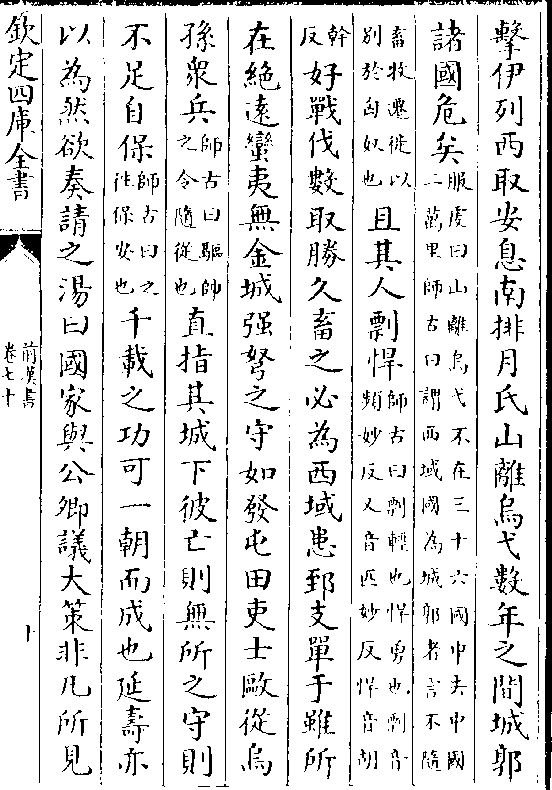 擊伊列西取安息南排月氏山離烏弋數年之間城郭
諸國危矣服䖍曰山離烏弋不在三十六國中去中國二萬里師古曰謂西域國為城郭者言不隨
畜牧遷徙以別於匈奴也且其人剽悍師古曰剽輕也悍勇也剽音頻妙反又音匹妙反悍音胡
幹反好戰伐數取勝久畜之必為西域患郅支單于雖所
在絶逺蠻夷無金城强弩之守如發屯田吏士敺從烏
孫衆兵師古曰驅帥之令隨從也直指其城下彼亡則無所之守則
不足自保師古曰之往保安也千載之功可一朝而成也延壽亦
以為然欲奏請之湯曰國家與公卿議大策非凡所見
欽定四庫全書
前漢書
卷七十